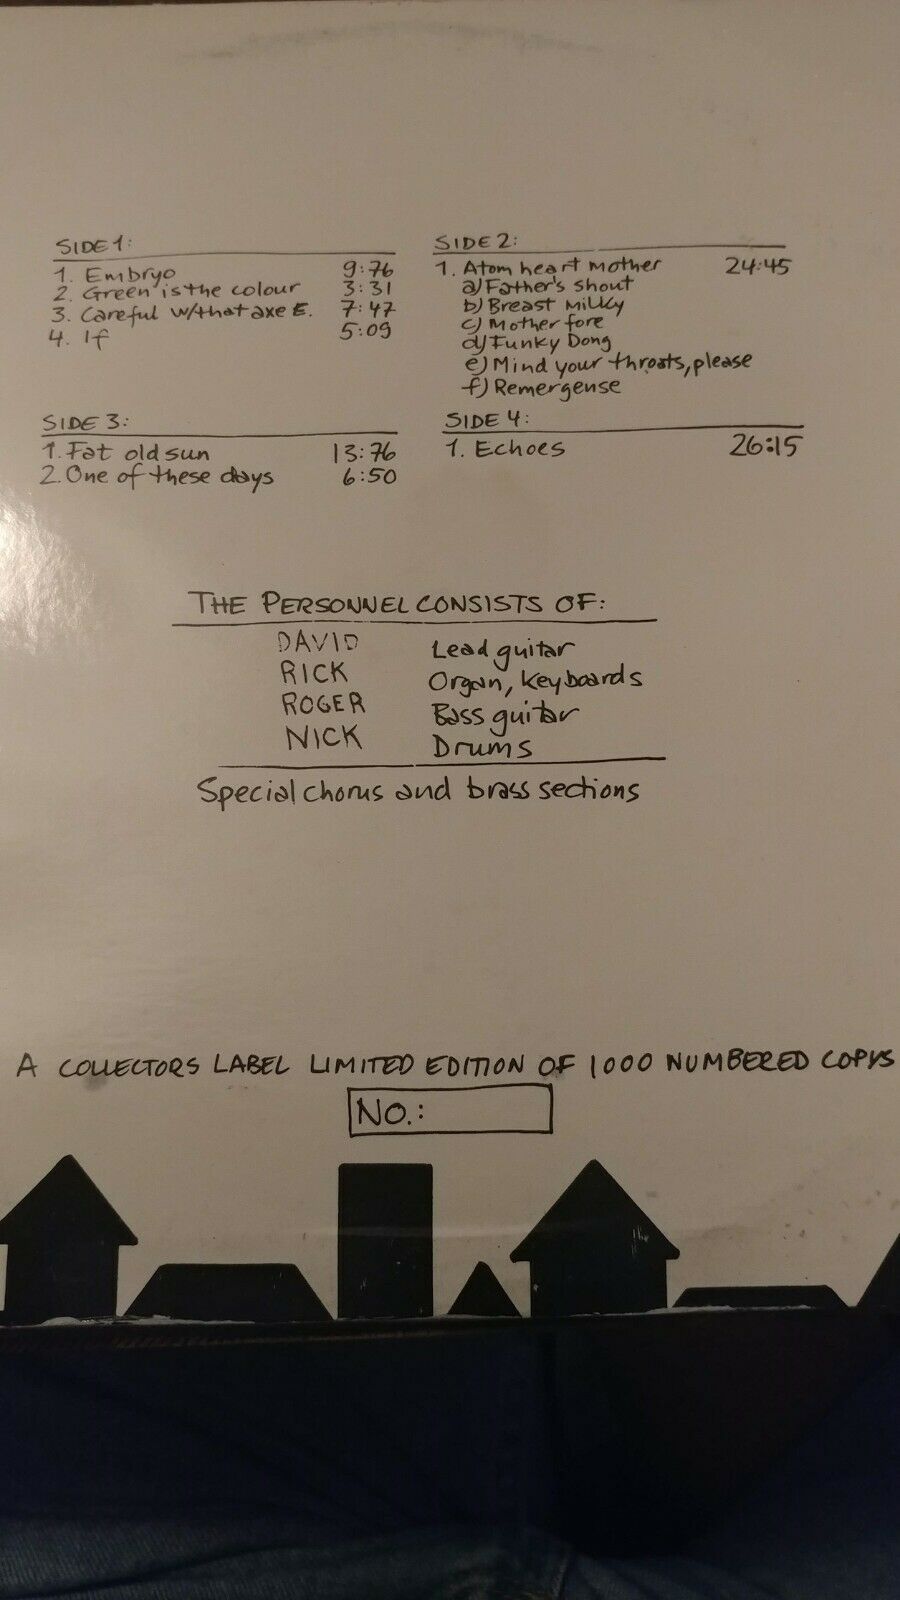 SIDE 1:
1. Embryo 9:76
2. Green is the colour 3:31
3. Careful w/that axe E. 7:47
4. If 5:09
SIDE 2:
1. Atom heart Mother 24:45
a) Father's shout
b) Breast Milky
c) Mother fore
d) Funky Dong
e) Mind your throats, please
f) Remergense
SIDE 3:
1. Fat old sun 13:76
2. One of these days 6:50
SIDE 4:
1. Echoes 26:15
THE PERSONNEL CONSISTS OF:
DAVID Lead guitar
RICK Organ, keyboards
ROGER Bass guitar
NICK Drums
Special chorus and brass sections
A COLLECTORS LABEL LIMITED EDITION OF 1000 NUMBERED COPYS
NO.: